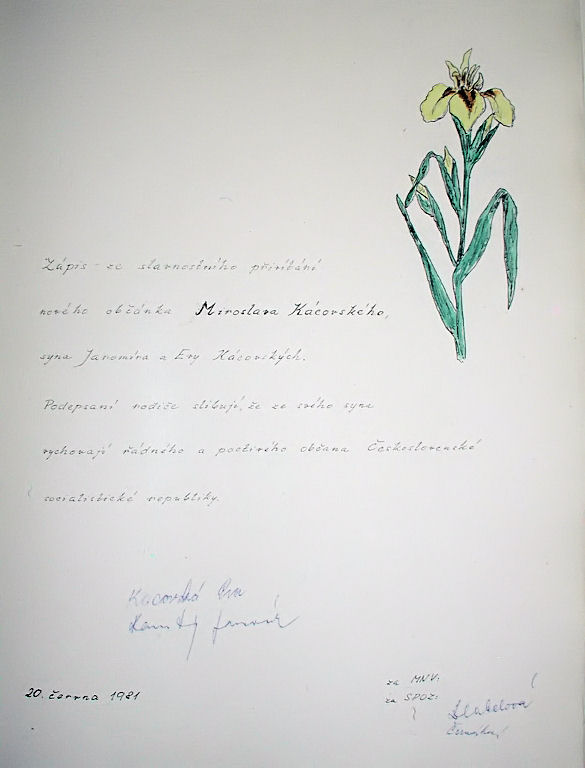 Zápis - ze slavnostního přivítání
nového občánka Miroslava Kácovského,
syna Jaromíra a Evy Kácovských.
Podepsaní rodiče slibují, že ze svého syna
vychovají řádného a poctivého občana Československé
socialistické republiky.
Kácovská Eva
20. června 1981
za MNV:
za SPOZ: